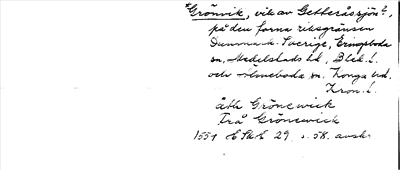 *Grönvik, vik av Getteråssjön?,
på den forna riksgränsen
Danmark-Sverige, Eringsboda
sn, Medelstads hd, Blek. l.
och Älmeboda sn. Konga hd.
Kron. l.
åth Grönewick
frå Grönewick
1551 29 s. 58. avskr.